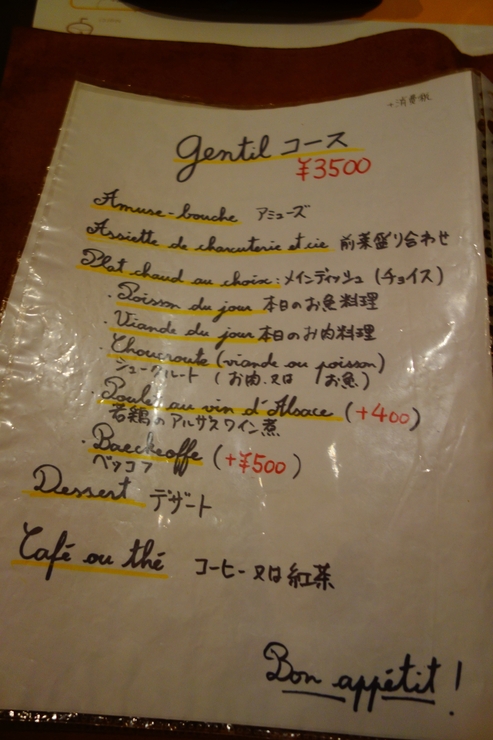 +消費税
Gentil コース
¥3500
Amuse-bouche アミューズ
Assiette de charcuterie et cie 前菜盛り合わせ
Plat chaud au choix: メインディッシュ (チョイス)
・Poisson du jour 本日のお魚料理
・Viande du jour 本日のお肉料理
・Choucroute (viande ou poisson)
シュークルート (お肉 又は お魚)
・Poulet au vin d'Alsace (+400)
若鶏のアルザスワイン煮
・Baeckeoffe (+¥500)
ベッコフ
Dessert デザート
Café ou thé コーヒー 又は 紅茶
Bon appétit!